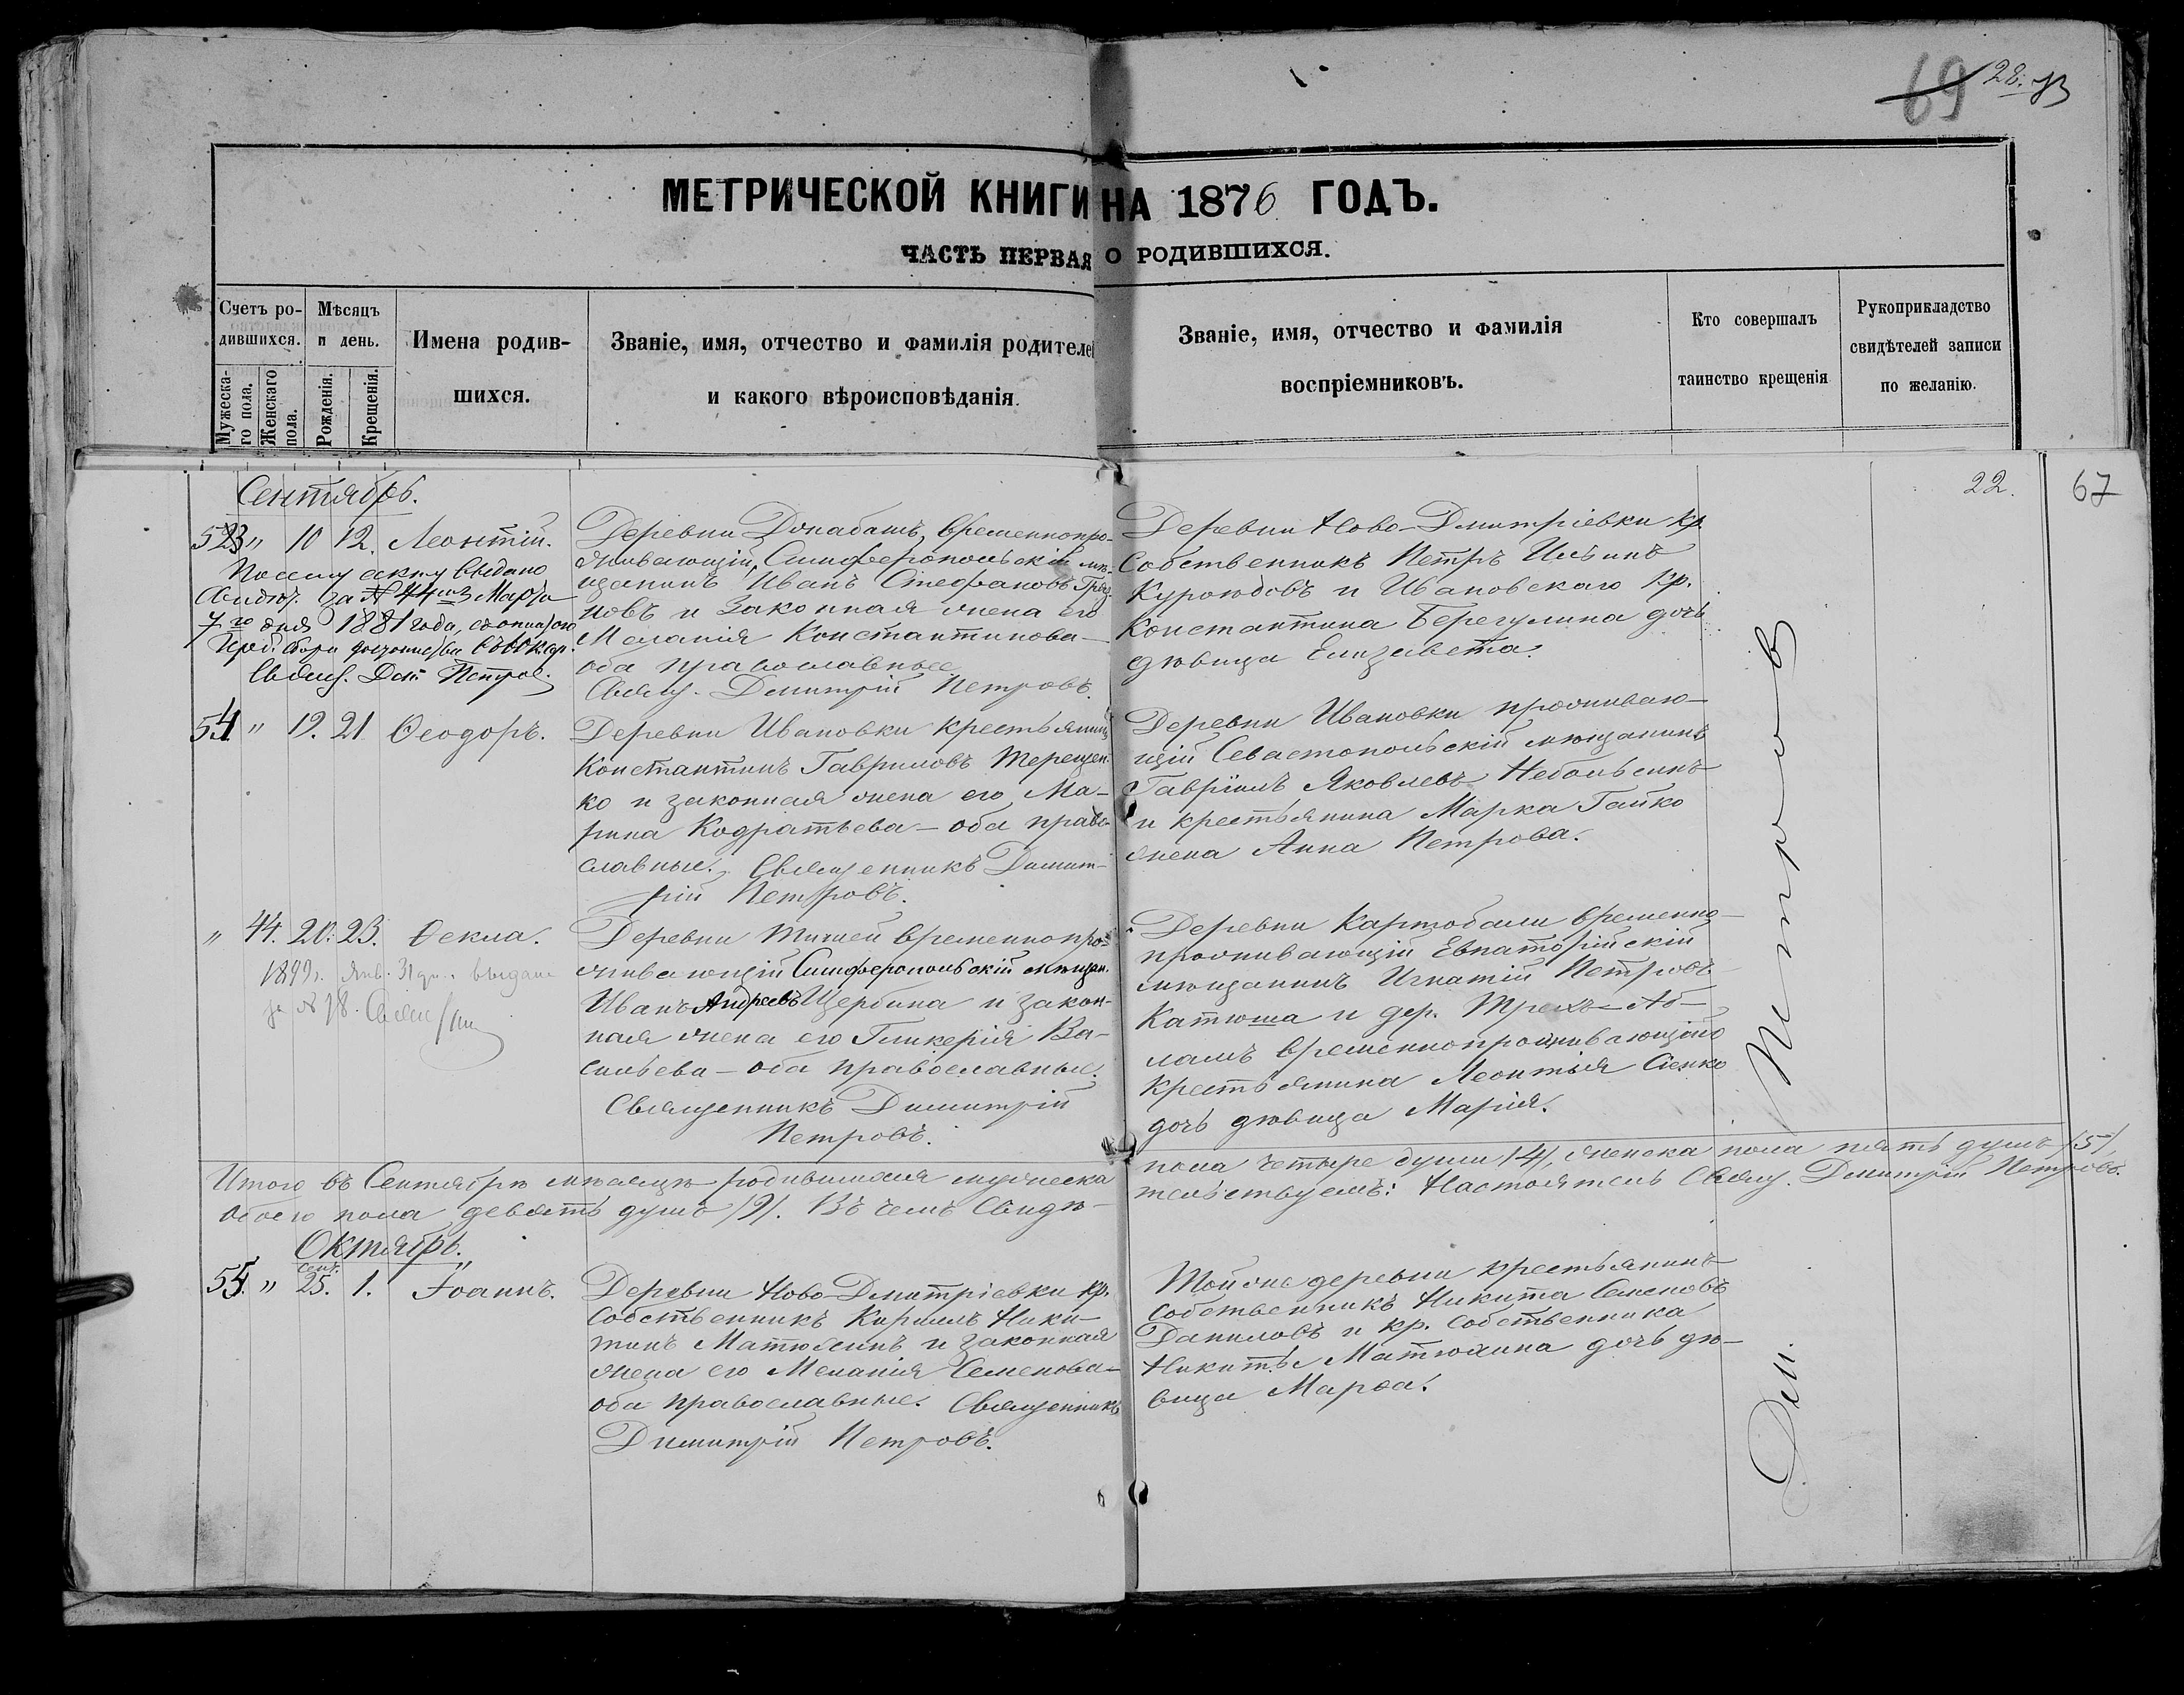 69 28.
МЕТРИЧЕСКОЙ КНИГИ НА 1876 ГОДЪ.
ЧАСТЬ ПЕРВАЯ О РОДИВШИХСЯ.
Счетъ ро-
дившихся.
Мужеска-
го пола.
Женскаго
пола.
Мѣсяцъ
и день.
Рожденія.
Крещенія.
Имена родив-
шихся.
Званіе, имя, отчество и фамилія родителей
и какого вѣроисповѣданія.
Званіе, имя, отчество и фамилія
воспріемниковъ.
Кто совершалъ
таинство крещенія
Рукоприкладство
свидѣтелей записи
по желанію.
22. 67
Сентябрь.
53 " 10 12. Леонтій.
По сему акту выдано
Свидѣт. за № 44 Марта
7го дня 1881 года,
Свящ. Петров.
Деревни Донабашъ, временнопро-
живающій, Симферопольскій мѣ-
щанинъ Иванъ Стефановъ
новъ и законная жена его
Меланія Константинова—
оба православные.
Свящ. Димитрій Петровъ.
Деревни Ново-Дмитріевки кр.
собственникъ Петръ Ильинъ
Куроѣдовъ и Ивановскаго кр.
Константина Берегулина дочь
дѣвица Елизавета.
54 " 19. 21 Ѳеодоръ.
Деревни Ивановки крестьянинъ
Константинъ Гавриловъ Терещен-
ко и законная жена его Ма-
рина Кодратьева — оба право-
славные. Священникъ Димит-
рій Петровъ.
Деревни Ивановки проживаю-
щій Севастопольскій мѣщанинъ
Гавріилъ Яковлевъ Небольсинъ
и крестьянина Марка Гайко
жена Анна Петрова.
" 44. 20. 23. Ѳекла.
1899г. Янв. 31 дня выдана
за № 78. Свящ.
Деревни Тишей временнопро-
живающій Симферопольскій мѣщан.
Иванъ Андреевъ Щербина и закон-
ная жена его Гликерія Ва-
сильева — оба православные.
Священникъ Димитрій
Петровъ.
Деревни Картобали временно-
проживающій Евпаторійскій
мѣщанинъ Игнатій Петровъ
Катюша и дер. Трехъ-Аб-
ламъ временнопроживающаго
крестьянина Леонтья Сѣнко
дочь дѣвица Марія.
Итого въ Сентябрѣ мѣсяцѣ родившихся мужеска пола четыре души /4/, женска пола пять душъ /5/,
обоего пола девять душъ /9/. Въ чемъ свидѣ-тельствуемъ: Настоятель Свящ. Димитрій Петровъ.
Октябрь.
55. " Сент. 25. 1. Іоаннъ.
Деревни Ново-Дмитріевки кр.
собственникъ Кириллъ Ники-
тинъ Матюхинъ и законная
жена его Меланія Семенова—
оба православные. Священникъ
Димитрій Петровъ.
Той же деревни крестьянинъ
собственникъ Никита Семеновъ
Даниловъ и кр. собственника
Никиты Матюхина дочь дѣ-
вица Марѳа.
Дим. Петровъ